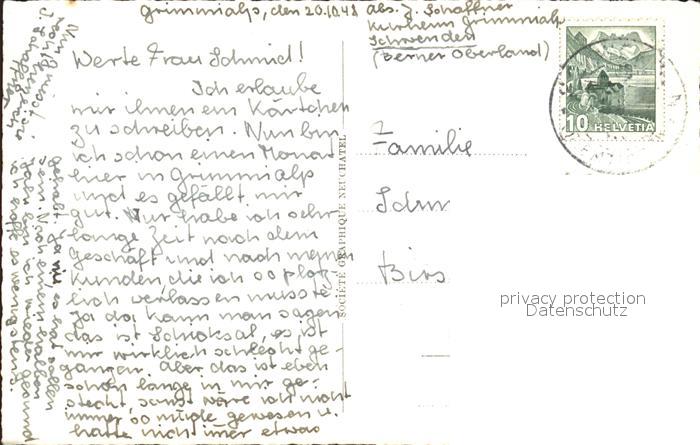 Grimmialp, den 20.10.48 Abs. J. Schaffner
Kurheim Grimmialp
Schwenden
(Berner Oberland)
Werte Frau Schmid!
Ich erlaube
mir ihnen ein Kärtchen
zu schreiben. Nun bin
ich schon einen Monat
hier in Grimmialp
und es gefällt mir
gut. Nur habe ich sehr
lange Zeit nach dem
Geschäft und nach meinen
Kunden, die ich so plötz-
lich verlassen musste.
Ja da kann man sagen
das ist Schicksal, es ist
mir wirklich schlecht ge-
gangen. Aber das ist eben
schon lange in mir ge-
steckt, sonst wäre ich nicht
immer so müde gewesen u.
hätte nicht immer etwas
gehabt. Ja nu, es hat sollen
sein. Noch einen halben
ich wieder gesund
ich hoffe es wenigstens.
Nun
J. Schaffner
SOCIÉTÉ GRAPHIQUE NEUCHATEL
10 HELVETIA
Familie
Schm
Birs
privacy protection
Datenschutz